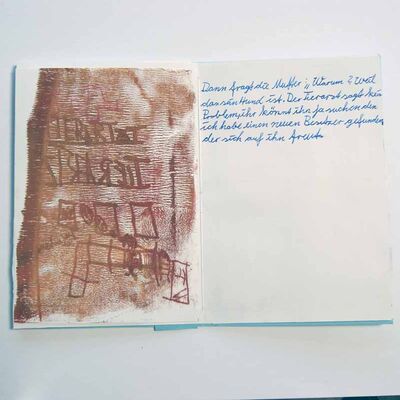 Dann fragt die Mutter: „Warum? Weil
das sein Hund ist. Der Tierarzt sagt kein
Problem ihr könnt ihn ja suchen den
ich habe einen neuen Besitzer gefunden
der sich auf ihn freut.